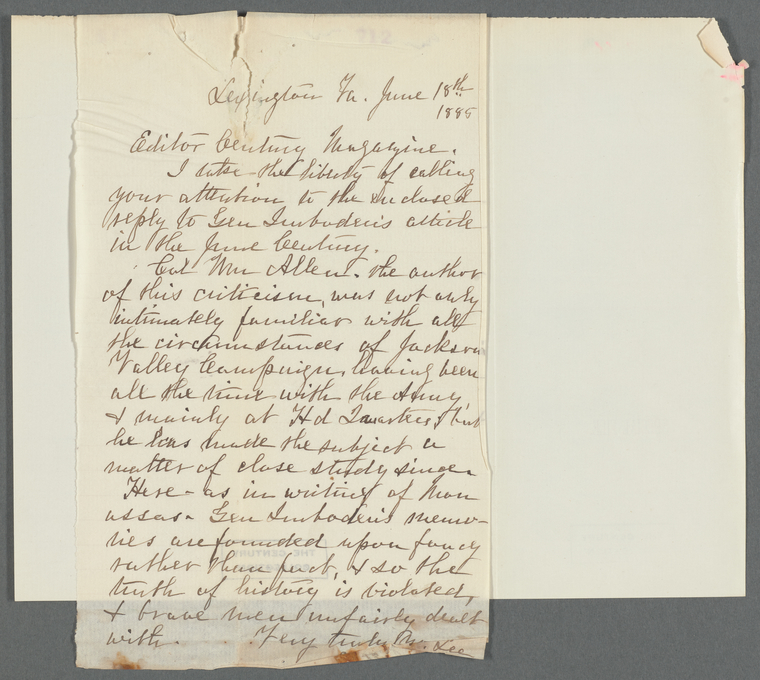 Lexington Va. June 18th
1885
Editor Century Magazine.
I take the liberty of calling
your attention to the inclosed
reply to Gen Imboden's article
in the June Century.
Col Wm Allen. the author
of this criticism, was not only
intimately familiar with all
the circumstances of Jackson
Valley Campaign, having been
all the time with the Army,
& mainly at Hd Quarters; but
he has made the subject a
matter of close study since.
Here - as in writing of Man
assas - Gen Imboden's memo-
ries are founded upon fancy
rather than fact, & so the
truth of history is violated,
& brave men unfairly dealt
with. Very truly Lee